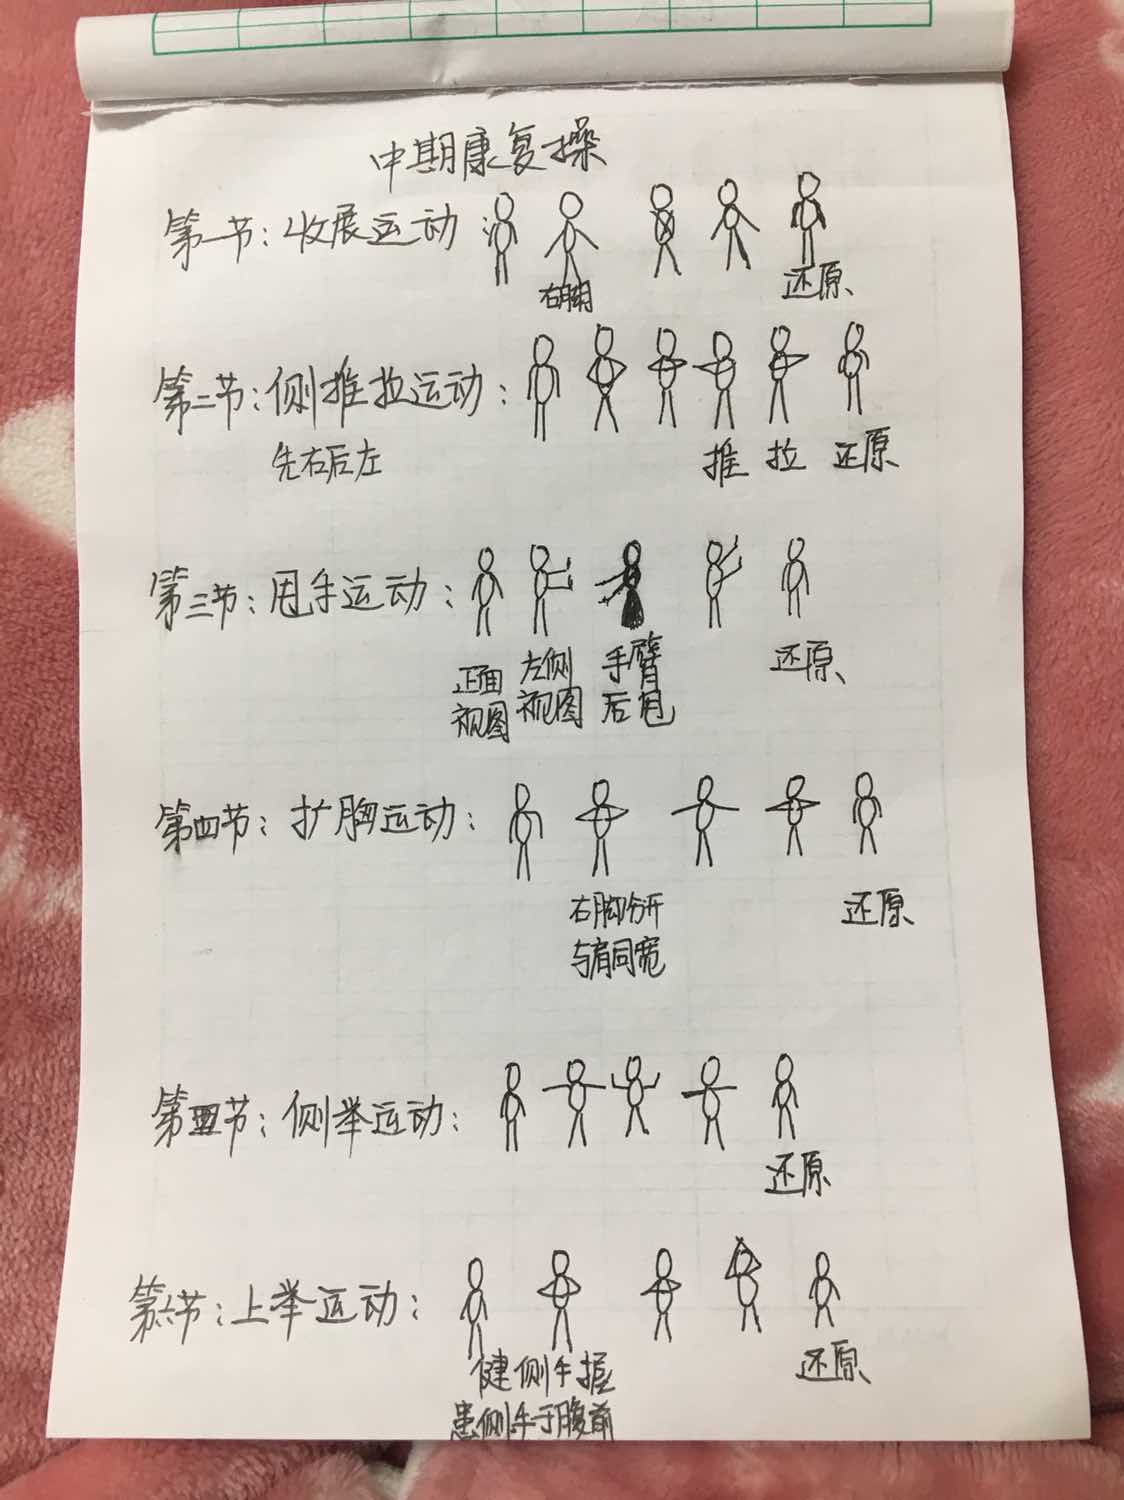 中期康复操
第一节：收展运动：
右脚
还原
第二节：侧推拉运动：
先右后左
推 拉 还原
第三节：甩手运动：
正面视图
左侧视图
手臂后甩
还原
第四节：扩胸运动：
右脚分开
与肩同宽
还原
第五节：侧举运动：
还原
第六节：上举运动：
健侧手握
患侧手于腹前
还原